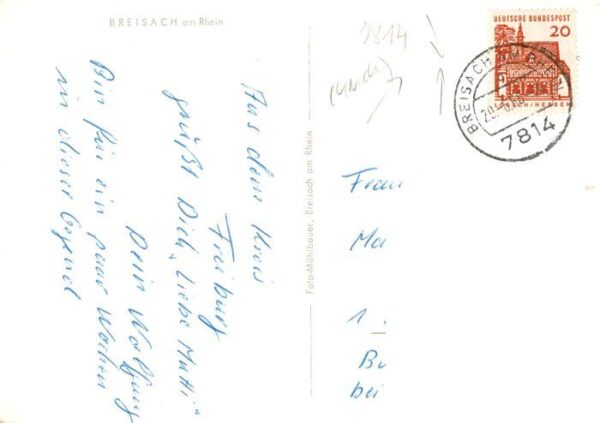 BREISACH am Rhein
Aus dem Kreis
Freiburg
grüßt Dich, liebe Mutti
Dein Wolfgang
Bin für ein paar Wochen
in dieser Gegend
Foto-Mühlbauer, Breisach am Rhein
7814
DEUTSCHE BUNDESPOST
20
LORSCH/HESSEN
BREISACH AM RHEIN
7814
Frau
Ma
1.
Bu
bei